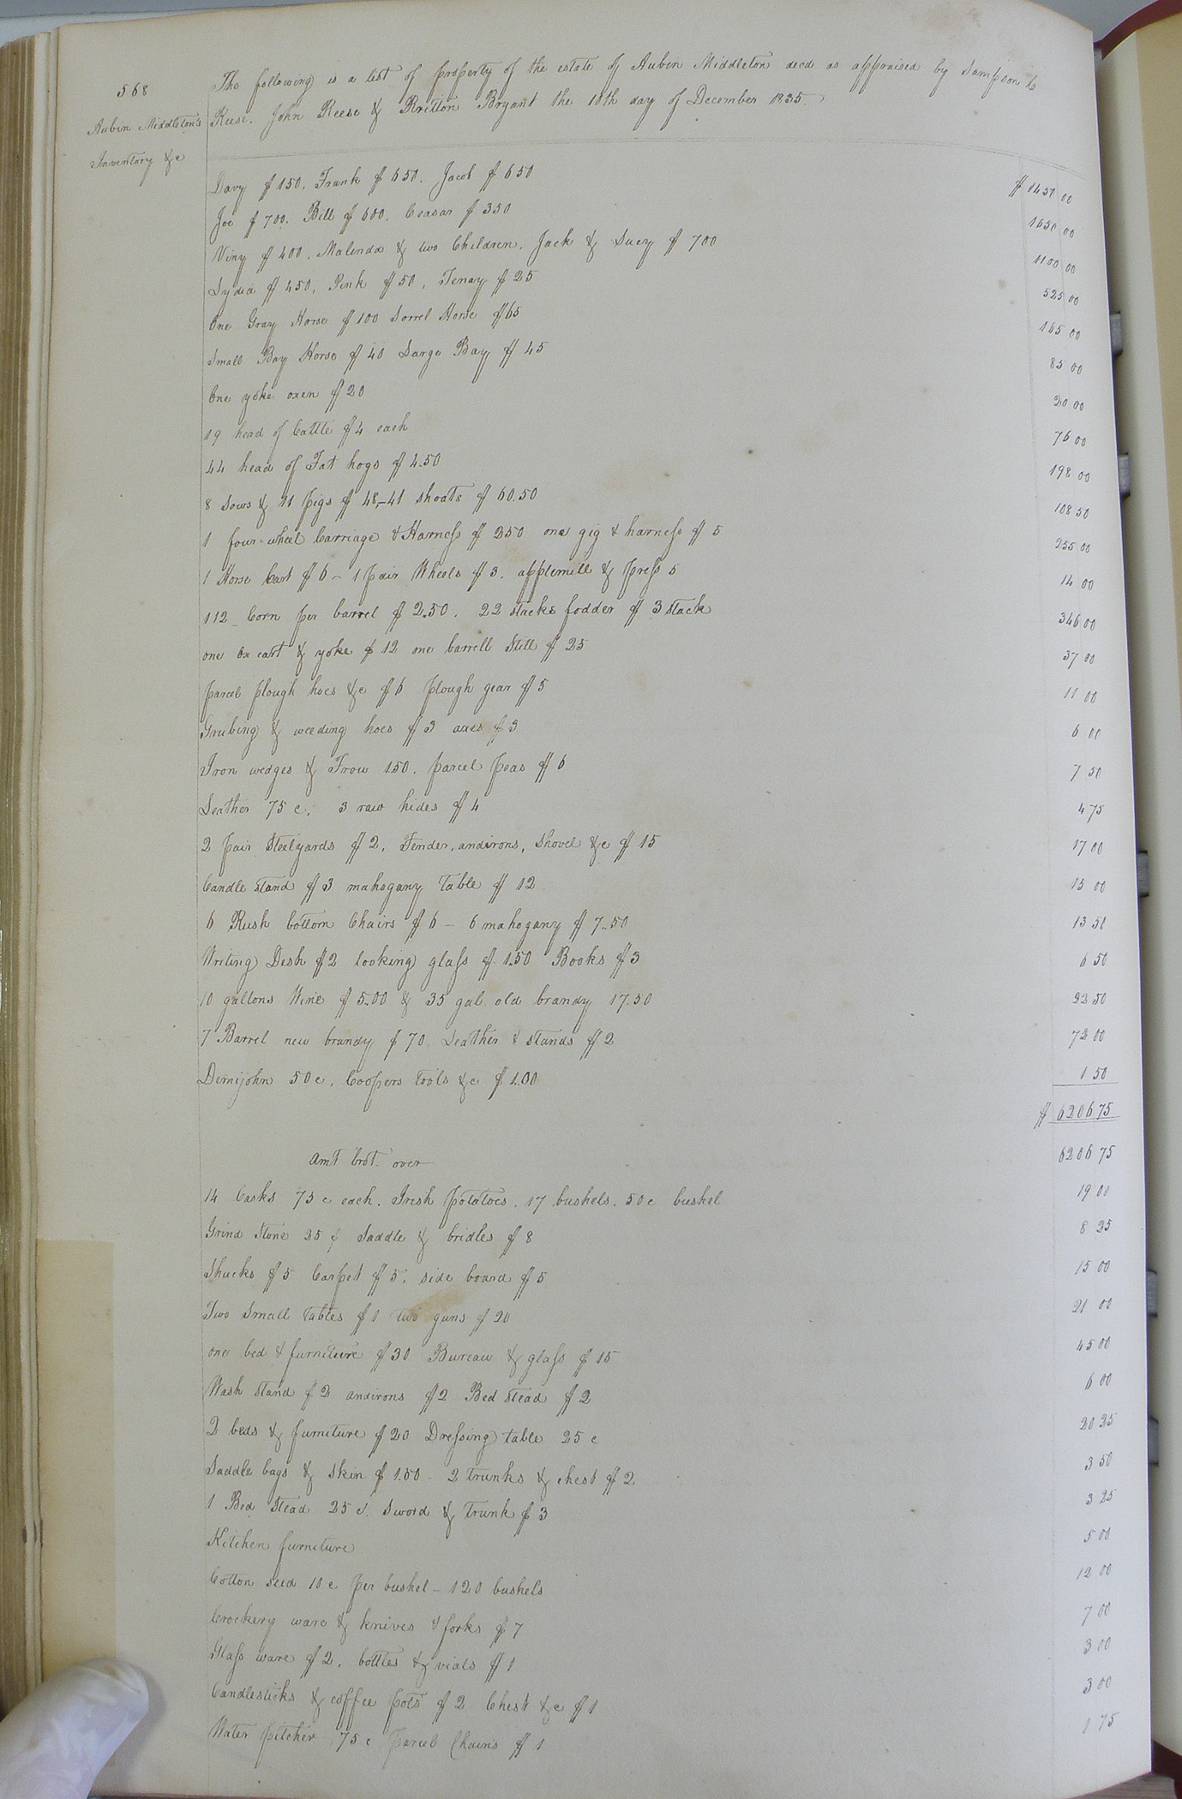 568
The following is a list of property of the estate of Aubin Middleton decd as appraised by Sampson
Aubin Middleton's
Reese. John Reese & Britton Bryant the 18th day of December 1835
Inventory &c
Davy $150. Frank $650. Jacob $650 $1450 00
Joe $700. Bill $600. Ceasar $350 1650 00
Viny $400. Malinda & two Children. Jack & Sucy $700 1100 00
Lydia $450. Pink $50. Tenay $25 525 00
One Gray Horse $100 Sorrel Horse $65 165 00
Small Bay Horse $40 Large Bay $45 85 00
One yoke oxen $20 20 00
19 head of Cattle $4 each 76 00
44 head of Fat hogs $4.50 198 00
8 Sows & 11 pigs $48,-41 shoats $60.50 108 50
1 four-wheel Carriage & Harness $250 one gig & harness $5 255 00
1 Horse Cart $6 - 1 pair Wheels $3. applemill & press 5 14 00
112 Corn per barrel $2.50. 22 stacks fodder $3 stack 346 00
one Ox cart & yoke $12 one barrell Still $25 37 00
parcel plough hoes &c $6 plough gear $5 11 00
Grubing & weeding hoes $3 axes $3 6 00
Iron wedges & Frow 150. parcel peas $6 7 50
Leather 75 c. 3 raw hides $4 4 75
2 pair Steelyards $2. Fender, andirons, Shovel &c $15 17 00
Candle Stand $3 mahogany Table $12 15 00
6 Rush bottom Chairs $6 - 6 mahogany $7.50 13 50
Writing Desk $2 looking glass $1.50 Books $3 6 50
10 gallons Wine $5.00 & 35 gal. old brandy 17.50 22 50
7 Barrel new brandy $70 Leather & stands $2 72 00
Demijohn 50 c. Coopers Tools &c $1.00 1 50
$6206 75
Amt brot. over 6206 75
14 Casks 75 c each. Irish potatoes. 17 bushels. 50 c bushel 19 00
Grind Stone 25 ¢ Saddle & bridles $8 8 25
Shucks $5 Carpet $5. side board $5 15 00
Two Small tables $1 two guns $20 21 00
one bed & furniture $30 Bureau & glass $15 45 00
Wash stand $2 andirons $2 Bed Stead $2 6 00
2 beds & furniture $20 Dressing table 25 c 20 25
Saddle bags & Skin $1.50 2 trunks & chest $2 3 50
1 Bed Stead 25 c. Sword & Trunk $3 3 25
Kitchen furniture 5 00
Cotton seed 10 c per bushel - 120 bushels 12 00
Crockery ware & knives & forks $7 7 00
Glass ware $2. bottles & vials $1 3 00
Candlesticks & coffee pots $2 Chest &c $1 3 00
Water pitcher 75 c parcel Chairs $1 1 75